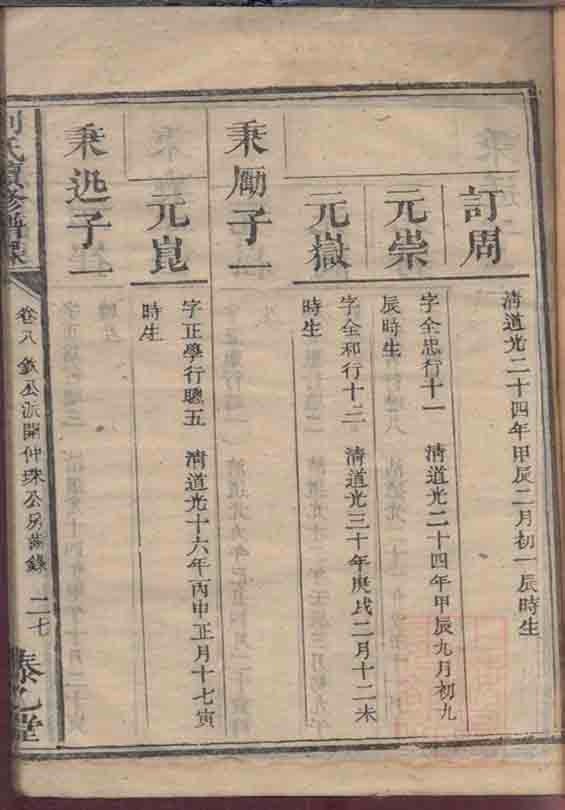 訂周
清道光二十四年甲辰二月初一辰時生
元崇
字全忠行十一 清道光二十四年甲辰九月初九
辰時生
元嶽
字全和行十二 清道光三十年庚戌二月十二未
時生
秉勵子一
元崑
字正學行聰五 清道光十六年丙申正月十七寅
時生
秉遜子一
氏續修譜
卷八 公派開仲珠公房齒錄 二七
堂